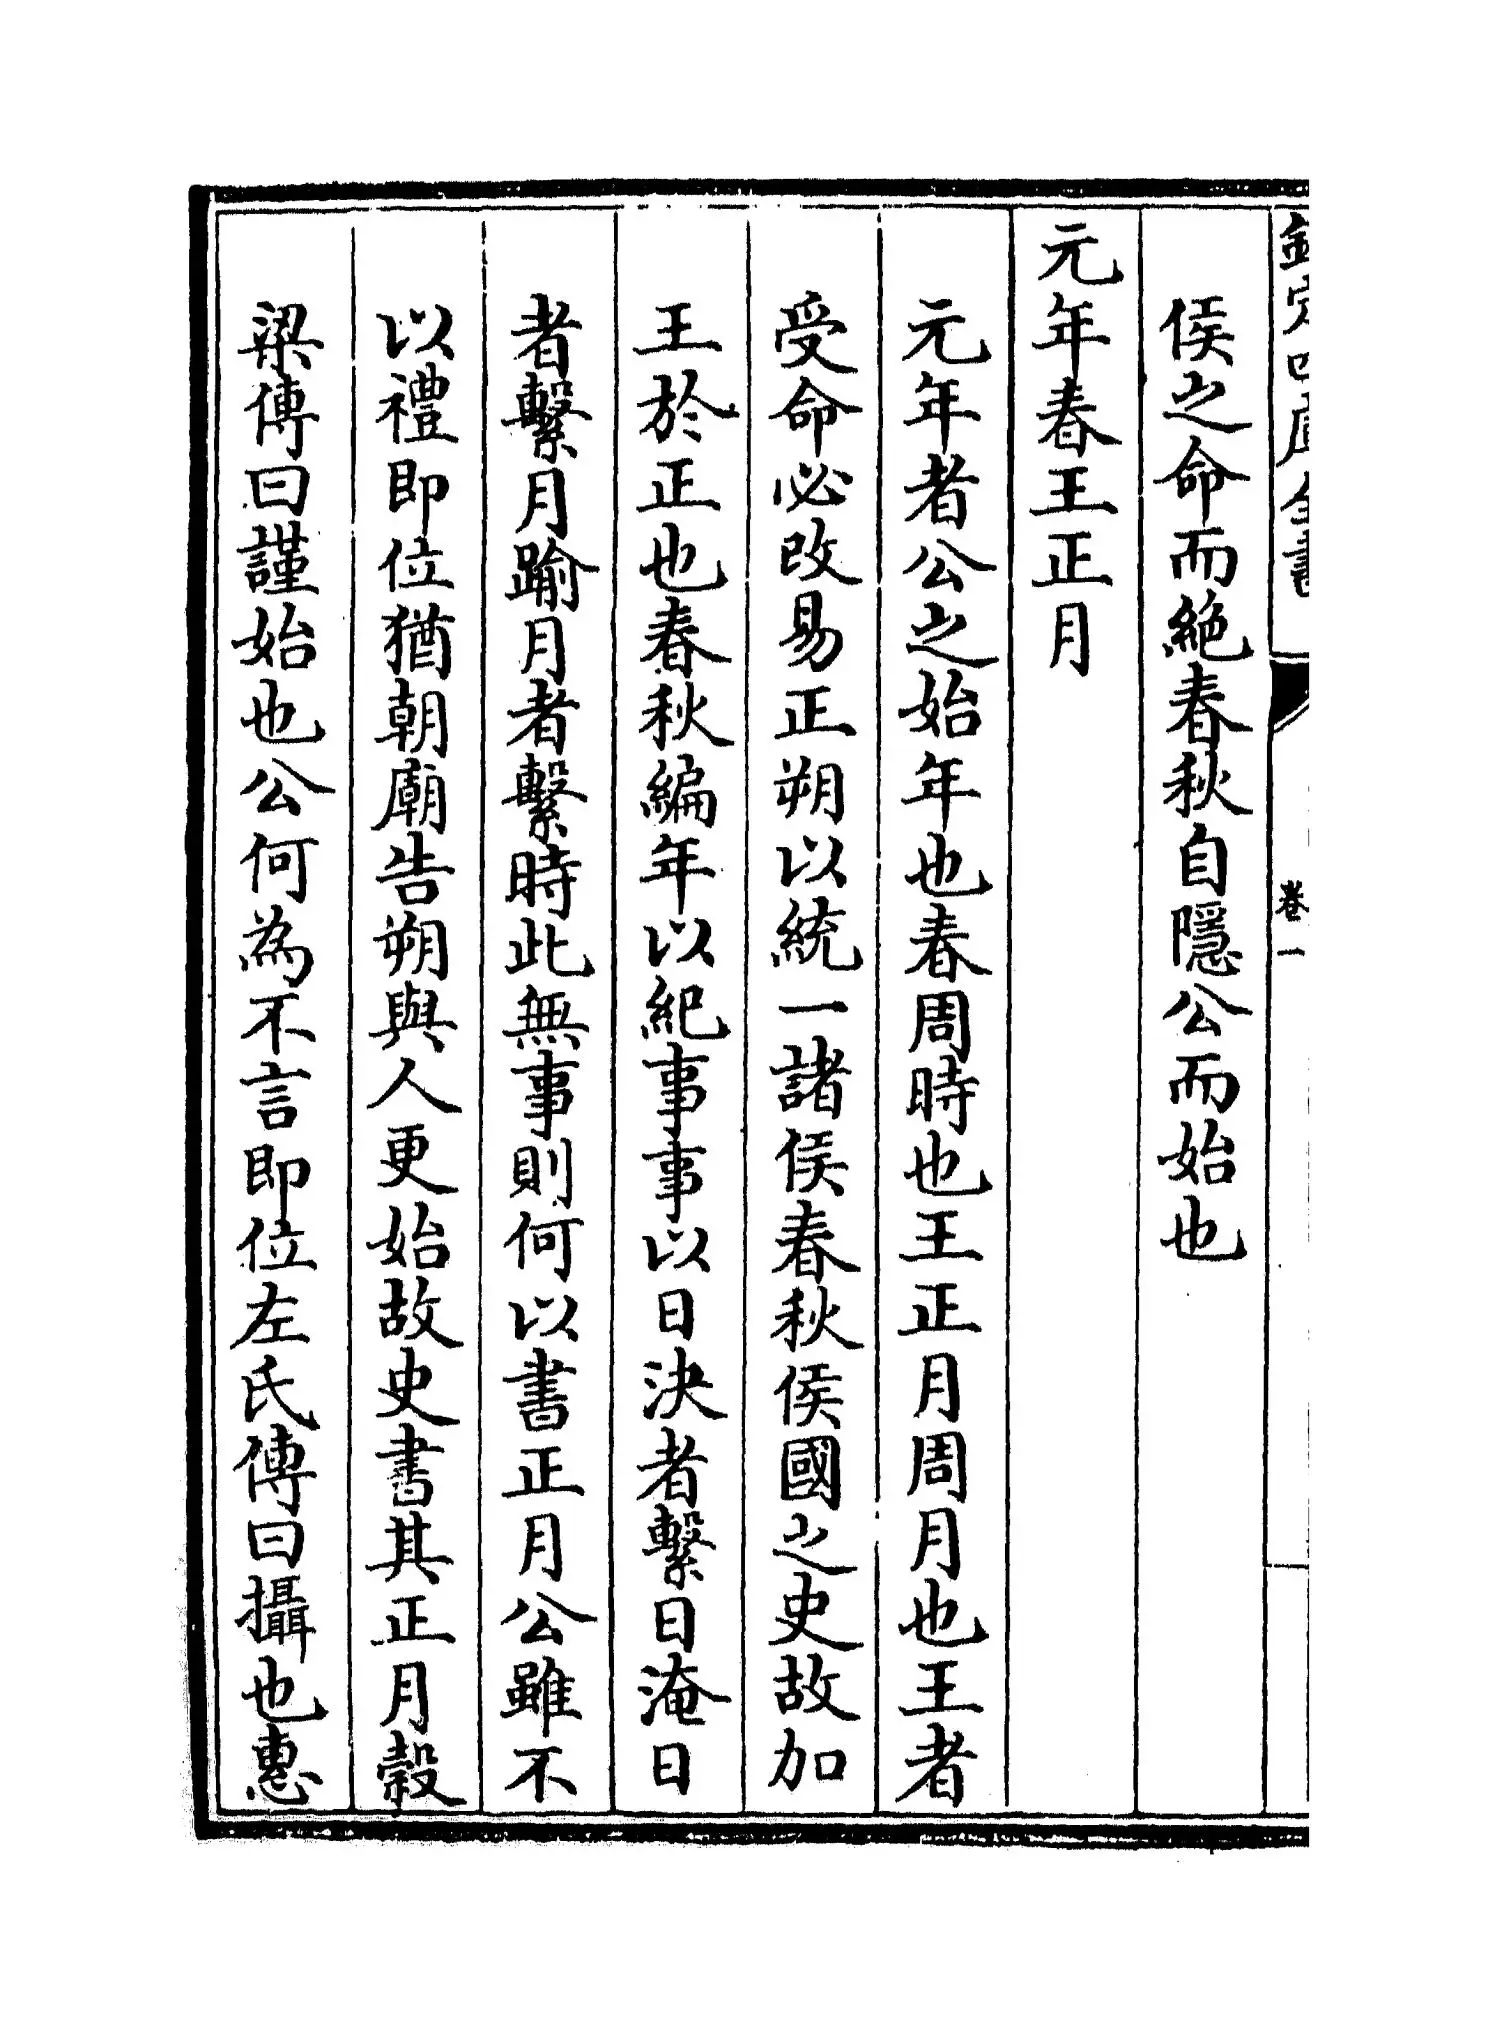 欽定四庫全書
卷一
侯之命而絶春秋自隱公而始也
元年春王正月
元年者公之始年也春周時也王正月周月也王者
受命必改易正朔以統一諸侯春秋侯國之史故加
王於正也春秋編年以紀事事以日決者繫日淹日
者繫月踰月者繫時此無事則何以書正月公雖不
以禮即位猶朝廟告朔與人更始故史書其正月穀
梁傳曰謹始也公何為不言即位左氏傳曰攝也惠